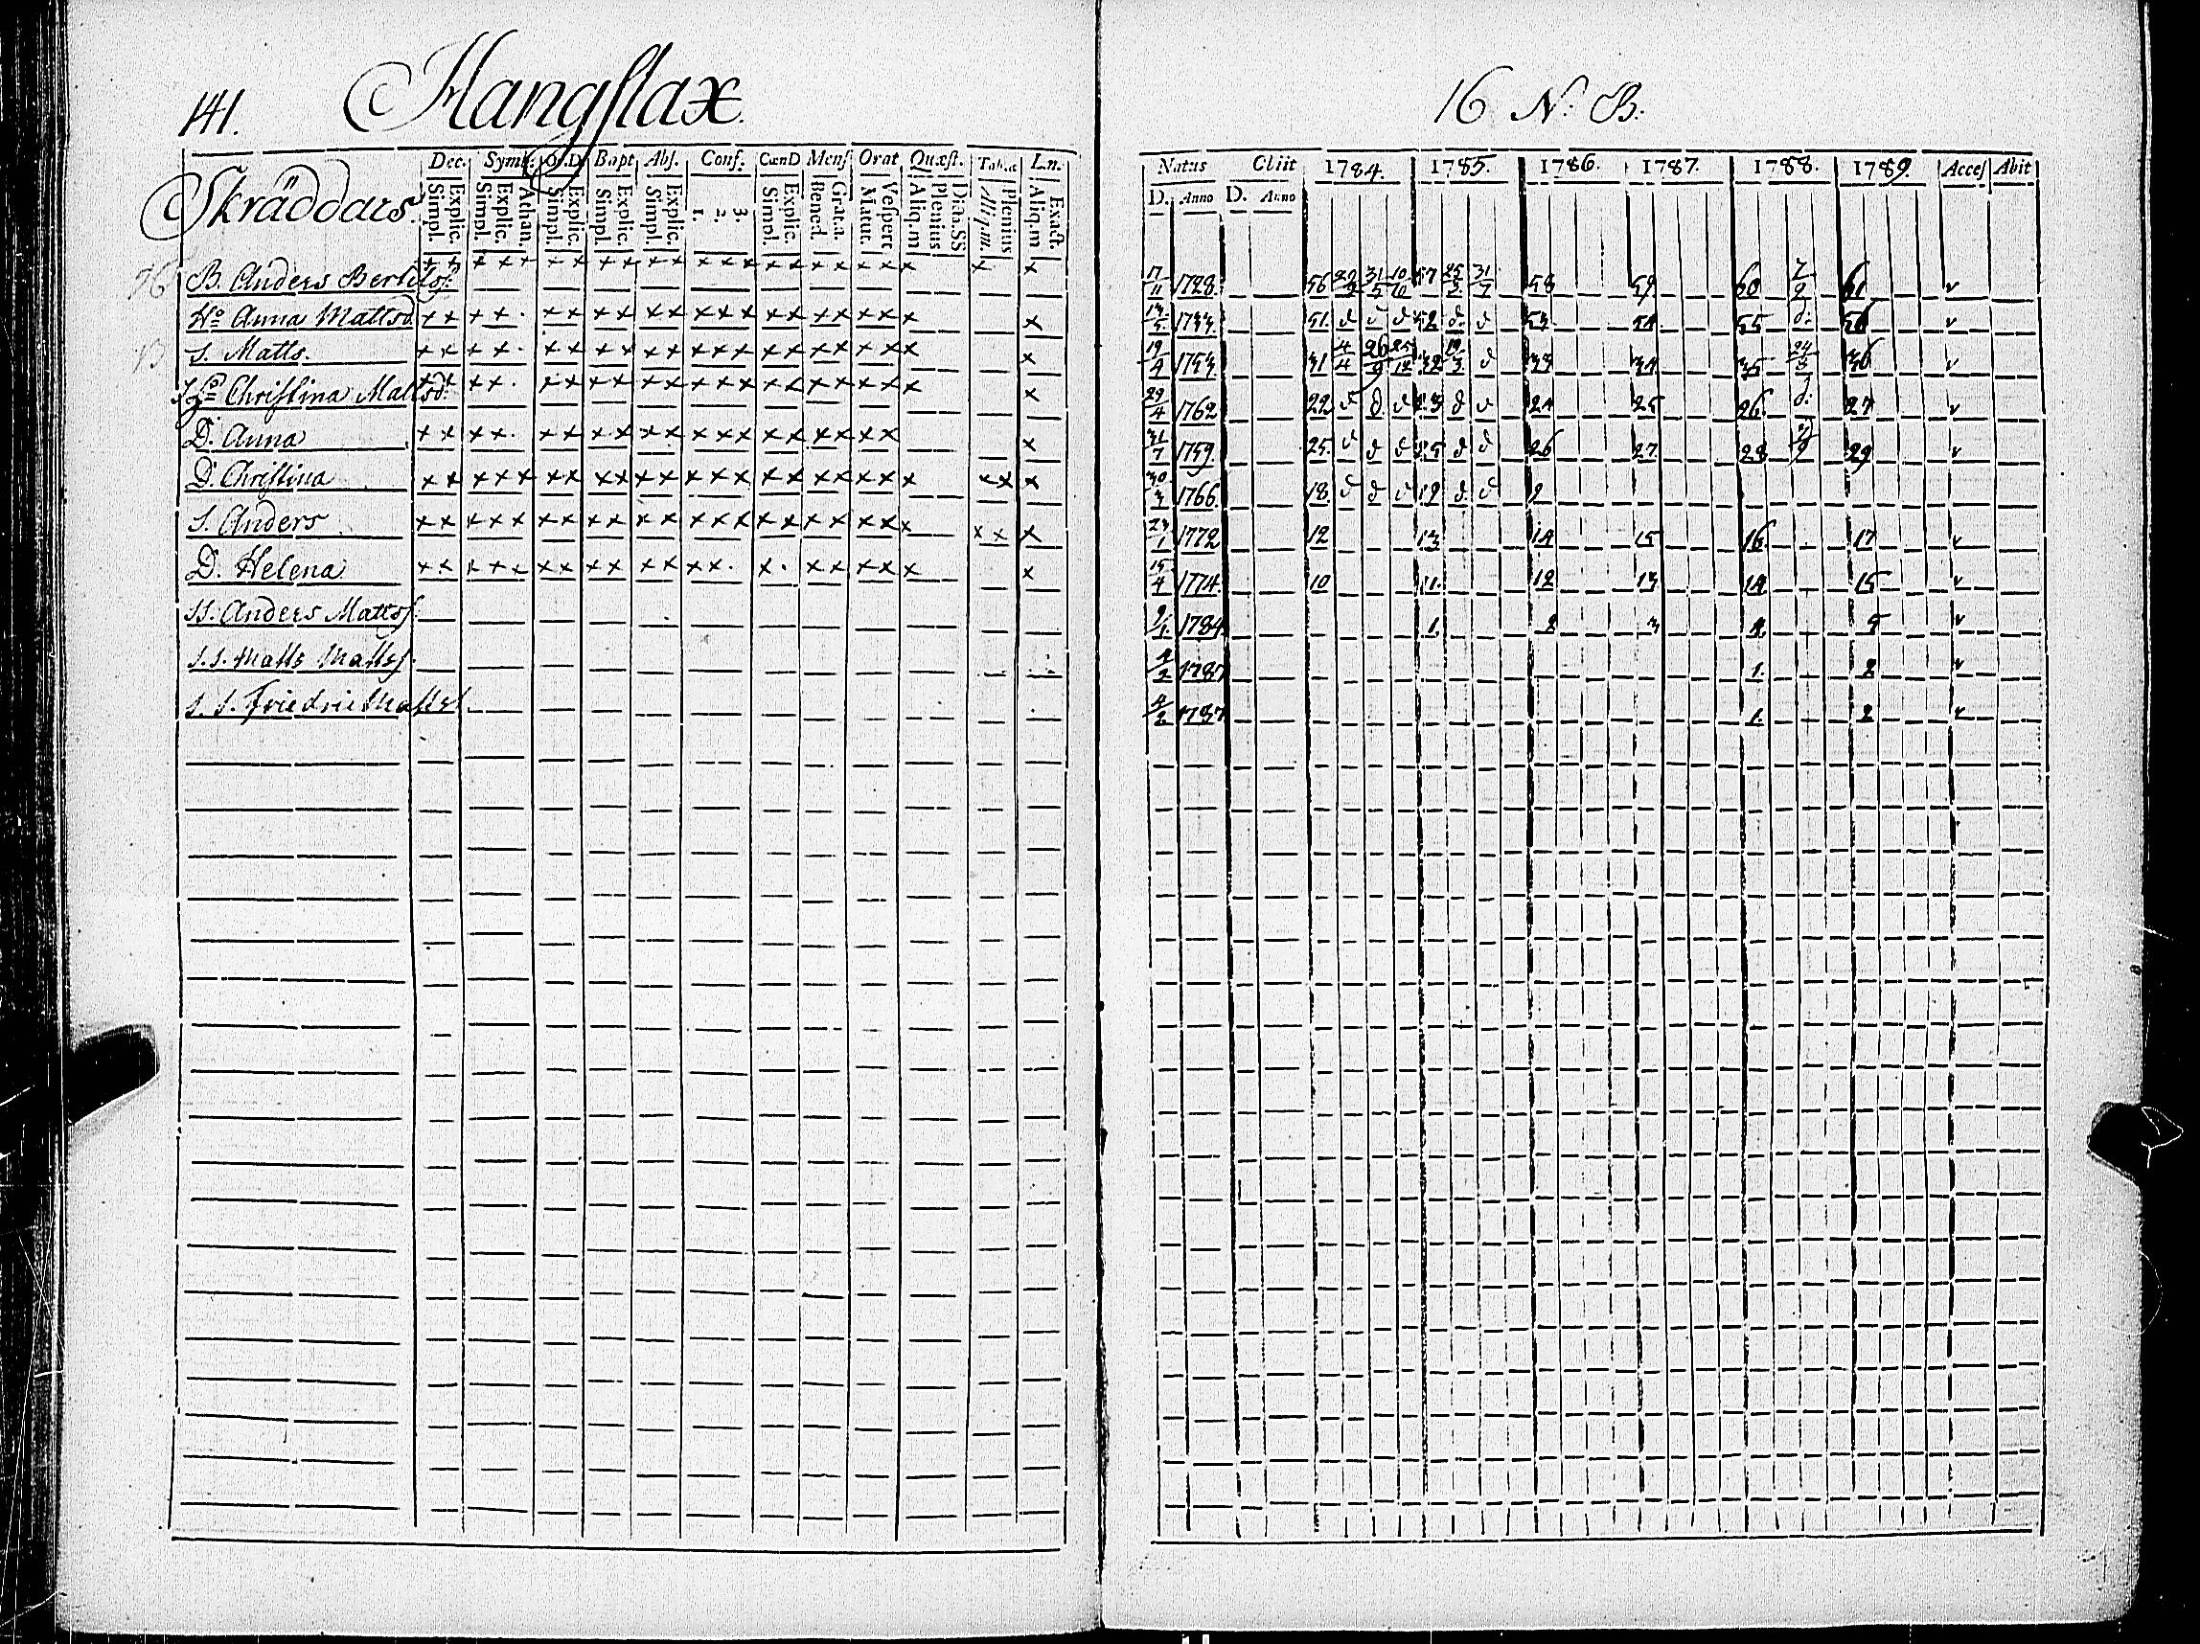 141. Hangslax. 16 N. B.
Skräddars.
Dec. Symb. O.D. Bapt. Abs. Conf. CœnD Mens Orat. Quæst. Tab. Ln.
Simpl. Explic. Simpl. Explic. Athan. Simpl. Explic. Simpl. Explic. Simpl. Explic. 1. 2. 3. Simpl. Explic. Bened. Grat.a. Matut. Vespert. Aliq.m Plenius Dicta.SS Aliq.m. Plenius Aliq.m Exact.
Natus Obiit 1784. 1785. 1786. 1787. 1788. 1789. Acces Abit
D. Anno D. Anno
76 B. Anders Bertilss: x x x x x x x x x x x x x x x x x x x x x x x 17/11 1728. 56 31/5 57 31/7 58 59 60 7/9 61 v
Ho Anna Mattsd. x x x x . x x x x x x x x x x x x x x x x x x 1733. 51. d d d 52 d. d 53 54 55 d. 56 v
S. Matts. x x x x . x x x x x x x x x x x x x x x x x x 19/4 1753. 31 4/4 26/9 25/12 32 3 d 33 34 35 24/8 36 v
S Ho Christina Mattsd. x x x x . x x x x x x x x x x x x x x x x x x 29/4 1762 22 d d d 23 d d 24 25 26. d. 27 v
D. Anna x x x x . x x x x x x x x x x x x x x x x x 31/7 1759. 25. d d d 25 d d 26 27 28 29 v
D. Christina x x x x x x x x x x x x x x x x x x x x x x x x 30/3 1766. 18. d d d 19 d. d
S. Anders x x x x x x x x x x x x x x x x x x x x x x x x 23/1 1772 12 13 14 15 16. 17 v
D. Helena x x x x x x x x x x x x x . x . x x x x x x 15/4 1774. 10 11. 12 13 14 15 v
SS. Anders Mattss: 1784. 1. 2 3 4. 5 v
S.S. Matts Mattss. 4/2 1787 1. 2 v
S. S. Friedric Mattss. 4/2 1787 1. 2 v